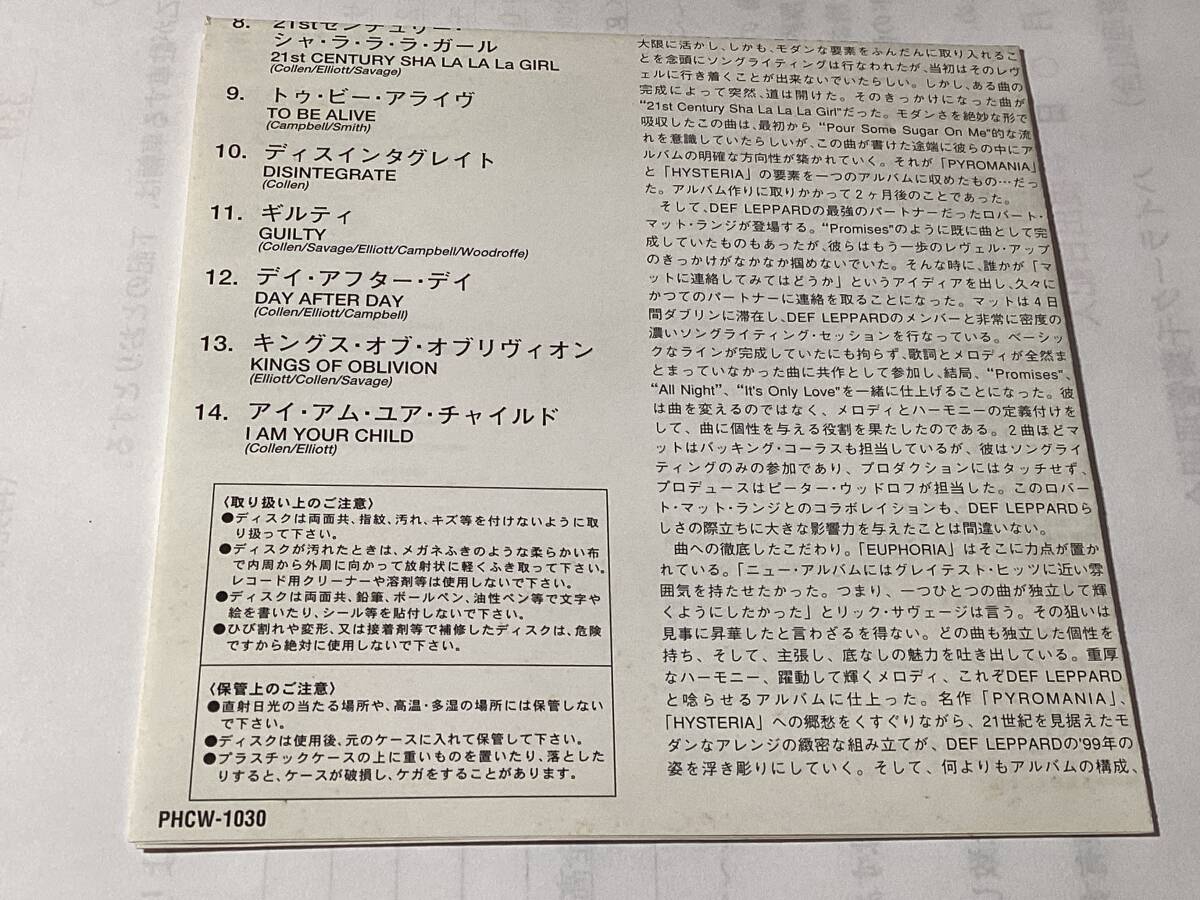 8. 21stセンチュリー・
シャ・ラ・ラ・ラ・ガール
21st CENTURY SHA LA LA La GIRL
(Collen/Elliott/Savage)
9. トゥ・ビー・アライヴ
TO BE ALIVE
(Campbell/Smith)
10. ディスインタグレイト
DISINTEGRATE
(Collen)
11. ギルティ
GUILTY
(Collen/Savage/Elliott/Campbell/Woodroffe)
12. デイ・アフター・デイ
DAY AFTER DAY
(Collen/Elliott/Campbell)
13. キングス・オブ・オブリヴィオン
KINGS OF OBLIVION
(Elliott/Collen/Savage)
14. アイ・アム・ユア・チャイルド
I AM YOUR CHILD
(Collen/Elliott)
〈取り扱い上のご注意〉
●ディスクは両面共、指紋、汚れ、キズ等を付けないように取
り扱って下さい。
●ディスクが汚れたときは、メガネふきのような柔らかい布
で内周から外周に向かって放射状に軽くふき取って下さい。
レコード用クリーナーや溶剤等は使用しないで下さい。
●ディスクは両面共、鉛筆、ボールペン、油性ペン等で文字や
絵を書いたり、シール等を貼付しないで下さい。
●ひび割れや変形、又は接着剤等で補修したディスクは、危険
ですから絶対に使用しないで下さい。
〈保管上のご注意〉
●直射日光の当たる場所や、高温・多湿の場所には保管しない
で下さい。
●ディスクは使用後、元のケースに入れて保管して下さい。
●プラスチックケースの上に重いものを置いたり、落とした
りすると、ケースが破損し、ケガをすることがあります。
PHCW-1030
大限に活かし、しかも、モダンな要素をふんだんに取り入れるこ
とを念頭にソングライティングは行なわれたが、当初はそのレヴ
ェルに行き着くことが出来ないでいたらしい。しかし、ある曲の
完成によって突然、道は開けた。そのきっかけになった曲が
“21st Century Sha La La La Girl”だった。モダンさを絶妙な形で
吸収したこの曲は、最初から“Pour Some Sugar On Me”的な流
れを意識していたらしいが、この曲が書けた途端に彼らの中にア
ルバムの明確な方向性が築かれていく。それが「PYROMANIA」
と「HYSTERIA」の要素を一つのアルバムに収めたもの…だっ
た。アルバム作りに取りかかって2ヶ月後のことであった。
そして、DEF LEPPARDの最強のパートナーだったロバート・
マット・ランジが登場する。“Promises”のように既に曲として完
成していたものもあったが、彼らはもう一歩のレヴェル・アップ
のきっかけがなかなか掴めないでいた。そんな時に、誰かが「マ
ットに連絡してみてはどうか」というアイディアを出し、久々に
かつてのパートナーに連絡を取ることになった。マットは4日
間ダブリンに滞在し、DEF LEPPARDのメンバーと非常に密度の
濃いソングライティング・セッションを行なっている。ベーシッ
クなラインが完成していたにも拘らず、歌詞とメロディが全然ま
とまっていなかった曲に共作として参加し、結局、“Promises”、
“All Night”、“It's Only Love”を一緒に仕上げることになった。彼
は曲を変えるのではなく、メロディとハーモニーの定義付けを
して、曲に個性を与える役割を果たしたのである。2曲ほどマ
ットはバッキング・コーラスも担当しているが、彼はソングライ
ティングのみの参加であり、プロダクションにはタッチせず、
プロデュースはピーター・ウッドロフが担当した。このロバー
ト・マット・ランジとのコラボレイションも、DEF LEPPARDら
しさの際立ちに大きな影響力を与えたことは間違いない。
曲への徹底したこだわり。「EUPHORIA」はそこに力点が置か
れている。「ニュー・アルバムにはグレイテスト・ヒッツに近い雰
囲気を持たせたかった。つまり、一つひとつの曲が独立して輝
くようにしたかった」とリック・サヴェージは言う。その狙いは
見事に昇華したと言わざるを得ない。どの曲も独立した個性を
持ち、そして、主張し、底なしの魅力を吐き出している。重厚
なハーモニー、躍動して輝くメロディ、これぞDEF LEPPARD
と唸らせるアルバムに仕上った。名作「PYROMANIA」、
「HYSTERIA」への郷愁をくすぐりながら、21世紀を見据えたモ
ダンなアレンジの緻密な組み立てが、DEF LEPPARDの'99年の
姿を浮き彫りにしていく。そして、何よりもアルバムの構成、